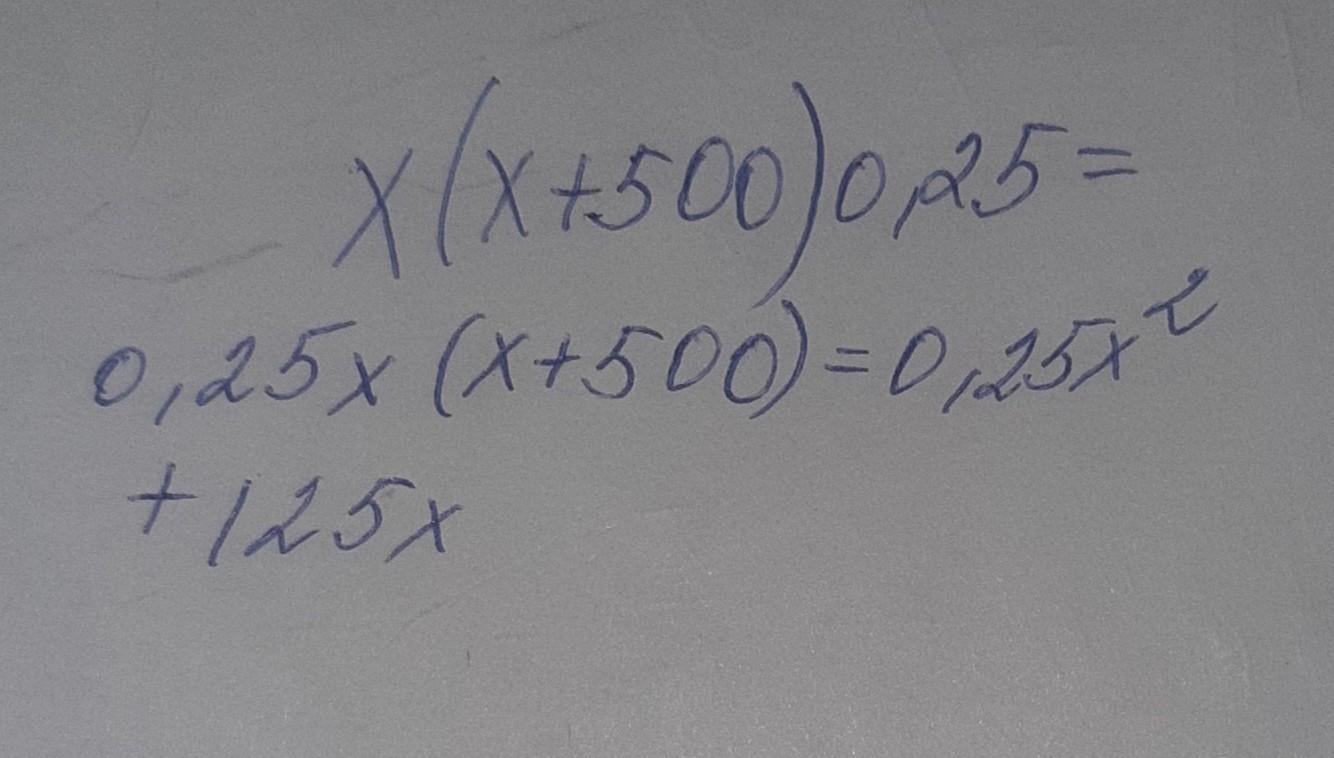 x(x+500)0,25=
0,25x(x+500)=0,25x²
+125x